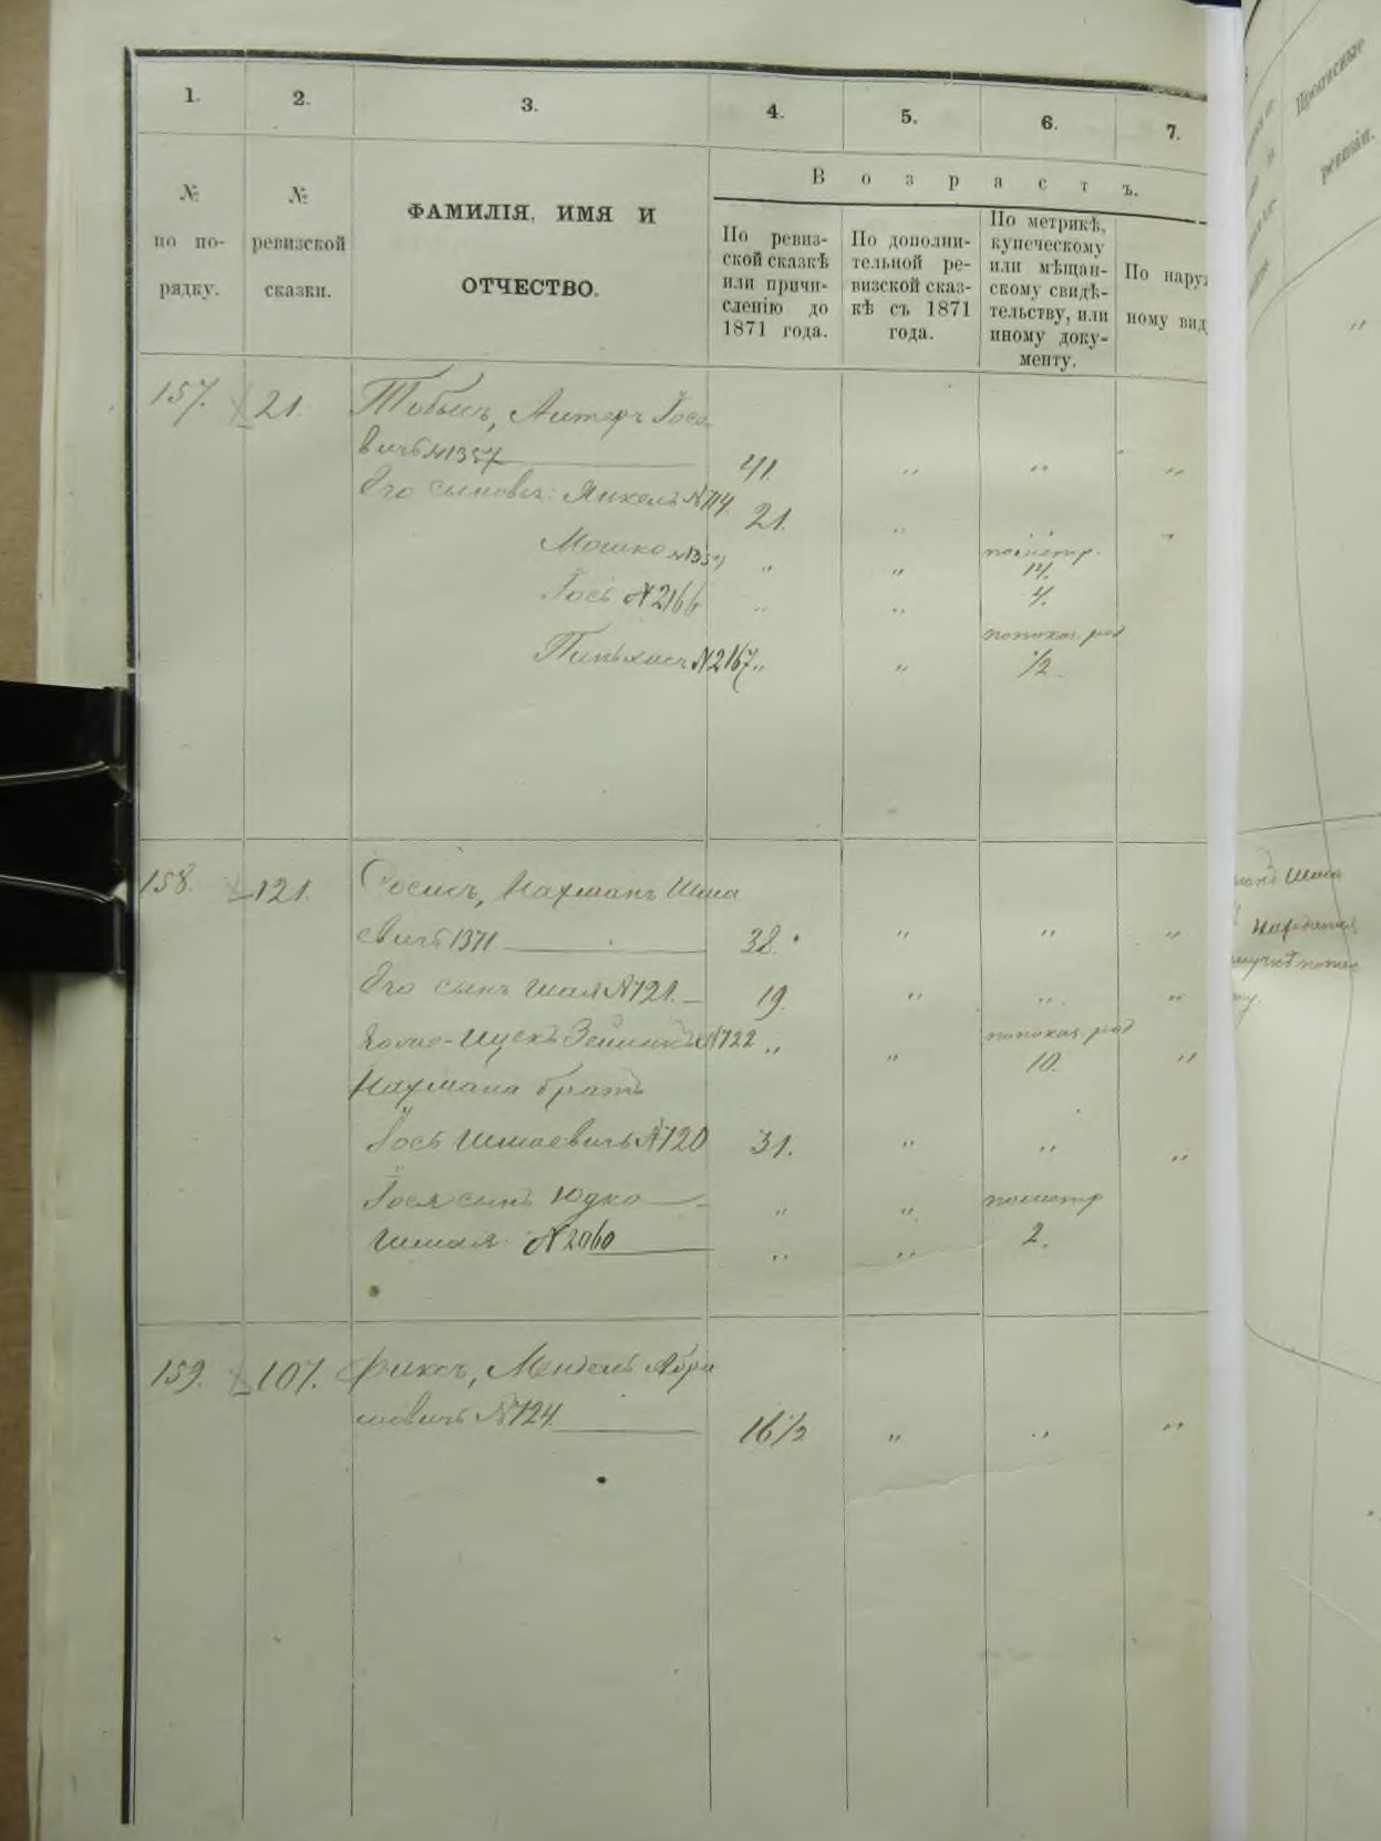 1. 2. 3. 4. 5. 6. 7.
№ по по- рядку.
№ ревизской сказки.
ФАМИЛІЯ, ИМЯ И
ОТЧЕСТВО.
Возрастъ.
По ревиз-
ской сказкѣ
или причи-
сленію до
1871 года.
По дополни-
тельной ре-
визской сказ-
кѣ съ 1871
года.
По метрикѣ,
купеческому
или мѣщан-
скому свидѣ-
тельству, или
иному доку-
менту.
По нару
ному вид
Прописные
ревизіи.
157. 21. Альтеръ Іосе
вичъ №1357 41. " " "
Его сыновья: Янкель №714 21. " " "
Мошко " " пометр. 14.
Іось №2166 " " 4.
Пинхасъ №2167 " " попоказ. род 1/2
158. 121. Нахманъ Шма
евичъ 1371 38. " " "
Его сынъ Шая №721. 19. " " "
Ицекъ Зейликъ №722 " " попоказ. род 10. "
Нахмана братъ
Іось Шмаевичъ №720 31. " " "
Іося сынъ Юдко " " пометр
Шмая. №2060 " " 2.
159. 107. Фиксъ, Мендель Абра
мовичъ №724 16 1/2 " " "